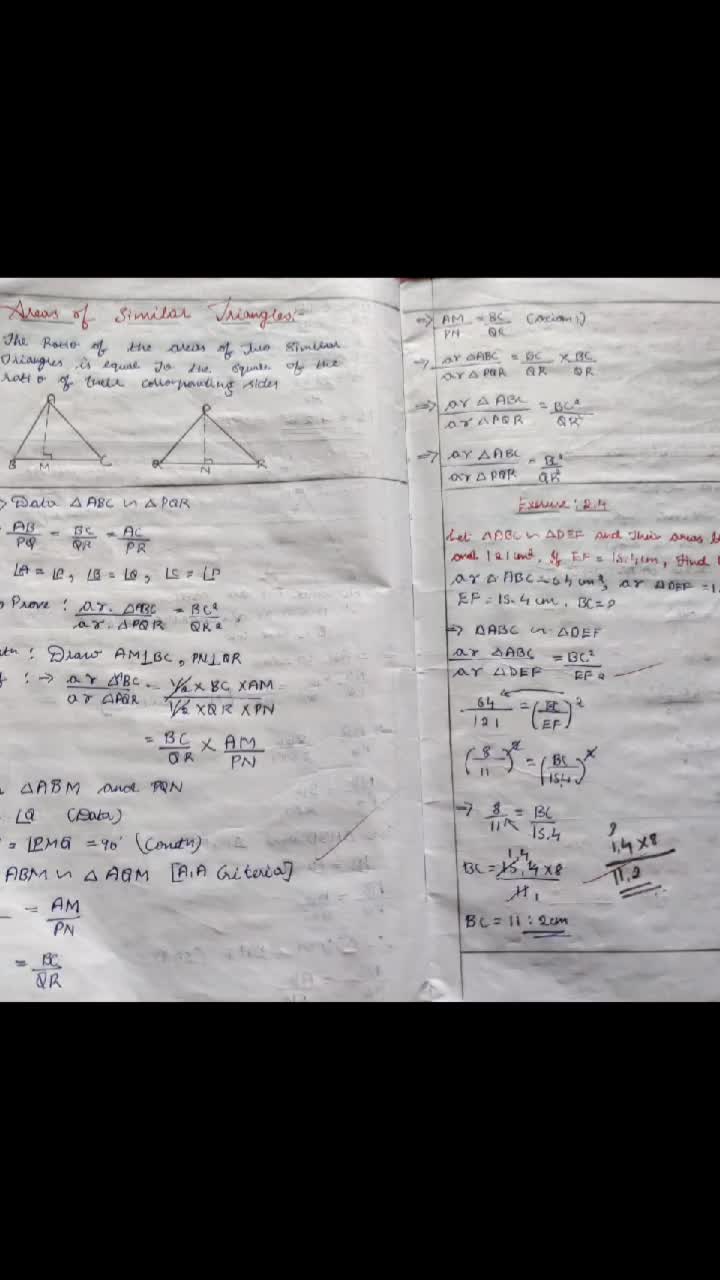 Areas of Similar Triangles:-
The Ratio of the areas of Two Similar
Triangles is equal to the square of the
ratio of their corresponding sides
A
B M C
P
Q N R
Data △ABC ∽ △PQR
AB/PQ = BC/QR = AC/PR
Prove : ar. △ABC / ar. △PQR = BC² / QR²,
: Draw AM⊥BC, PN⊥QR
: → ar △ABC / ar △PQR = 1/2 × BC × AM / 1/2 × QR × PN
= BC/QR × AM/PN
△ABM and PQN
∠Q (Data)
= ∠PMQ = 90° (Constn)
ABM ∽ △AQM [A.A Criteria]
= AM/PN
= BC/QR
⇒ AM/PN = BC/QR
→ ar △ABC / ar △PQR = BC/QR × BC/QR
⇒ ar △ABC / ar △PQR = BC² / QR²
⇒ ar △ABC / ar △PQR = BC² / QR²
Exercise : 2.4
Let △ABC ∽ △DEF and their areas
and 121 cm². If EF = 15.4 cm, find
ar △ABC = 64 cm², ar △DEF = 1
EF = 15.4 cm, BC = ?
⇒ △ABC ∽ △DEF
ar △ABC / ar △DEF = BC² / EF²
64/121 = (BC/EF)²
(8/11)² = (BC/15.4)²
⇒ 8/11 = BC/15.4
BC = 15.4 × 8 / 11
1.4
1
1.4 × 8
11.2
BC = 11.2cm